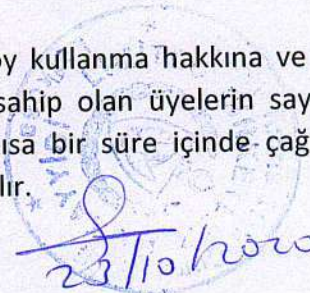 oy kullanma hakkına ve
sahip olan üyelerin say
ısa bir süre içinde çağ
lır.
23/10/2020